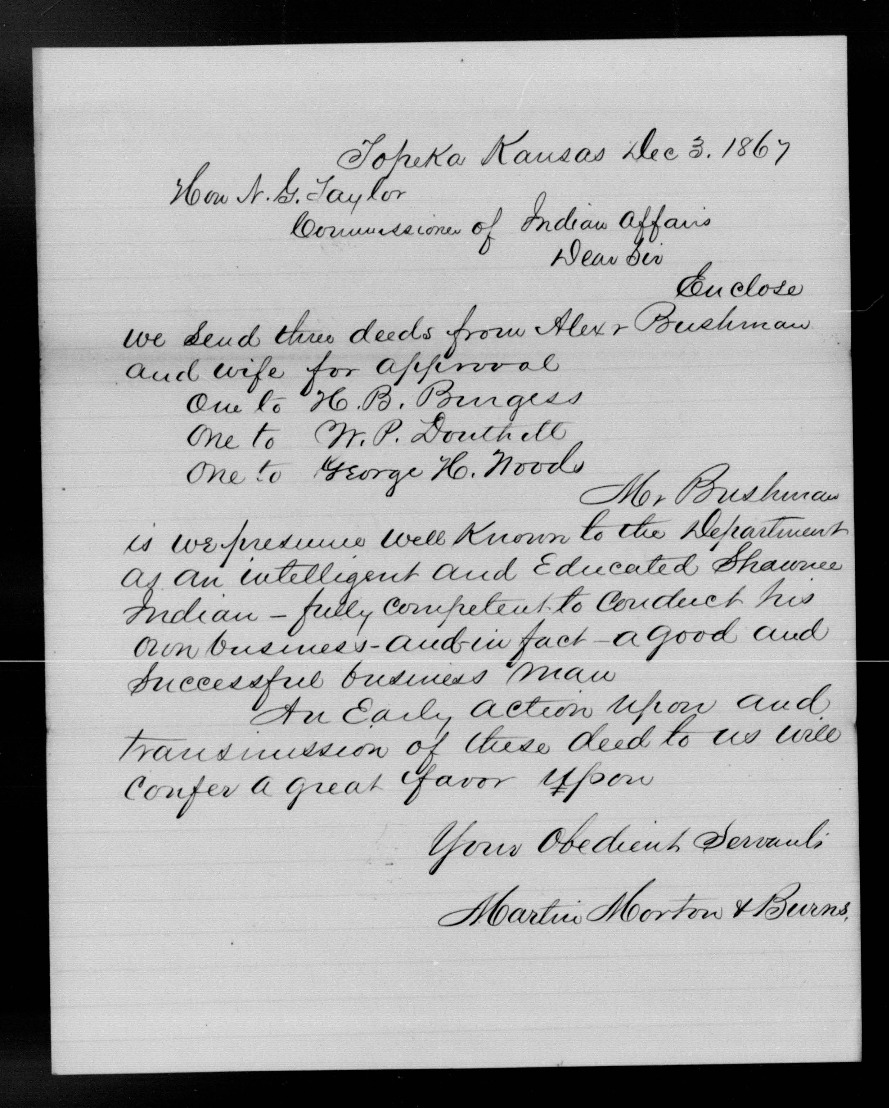 Topeka Kansas Dec 3. 1867
Hon N. G. Taylor
Commissioner of Indian Affairs
Dear Sir
Enclose
we send three deeds from Alexr Bushman
and wife for approval
One to H. B. Burgess
One to W. P. Douthitt
One to George H. Woods
Mr Bushman
is we presume well Known to the Department
as an intelligent and Educated Shawnee
Indian - fully competent to conduct his
own business - and in fact - a good and
Successful business man
An Early action upon and
transmission of these deed to us will
confer a great favor upon
Your Obedient Servants
Martin Morton & Burns.